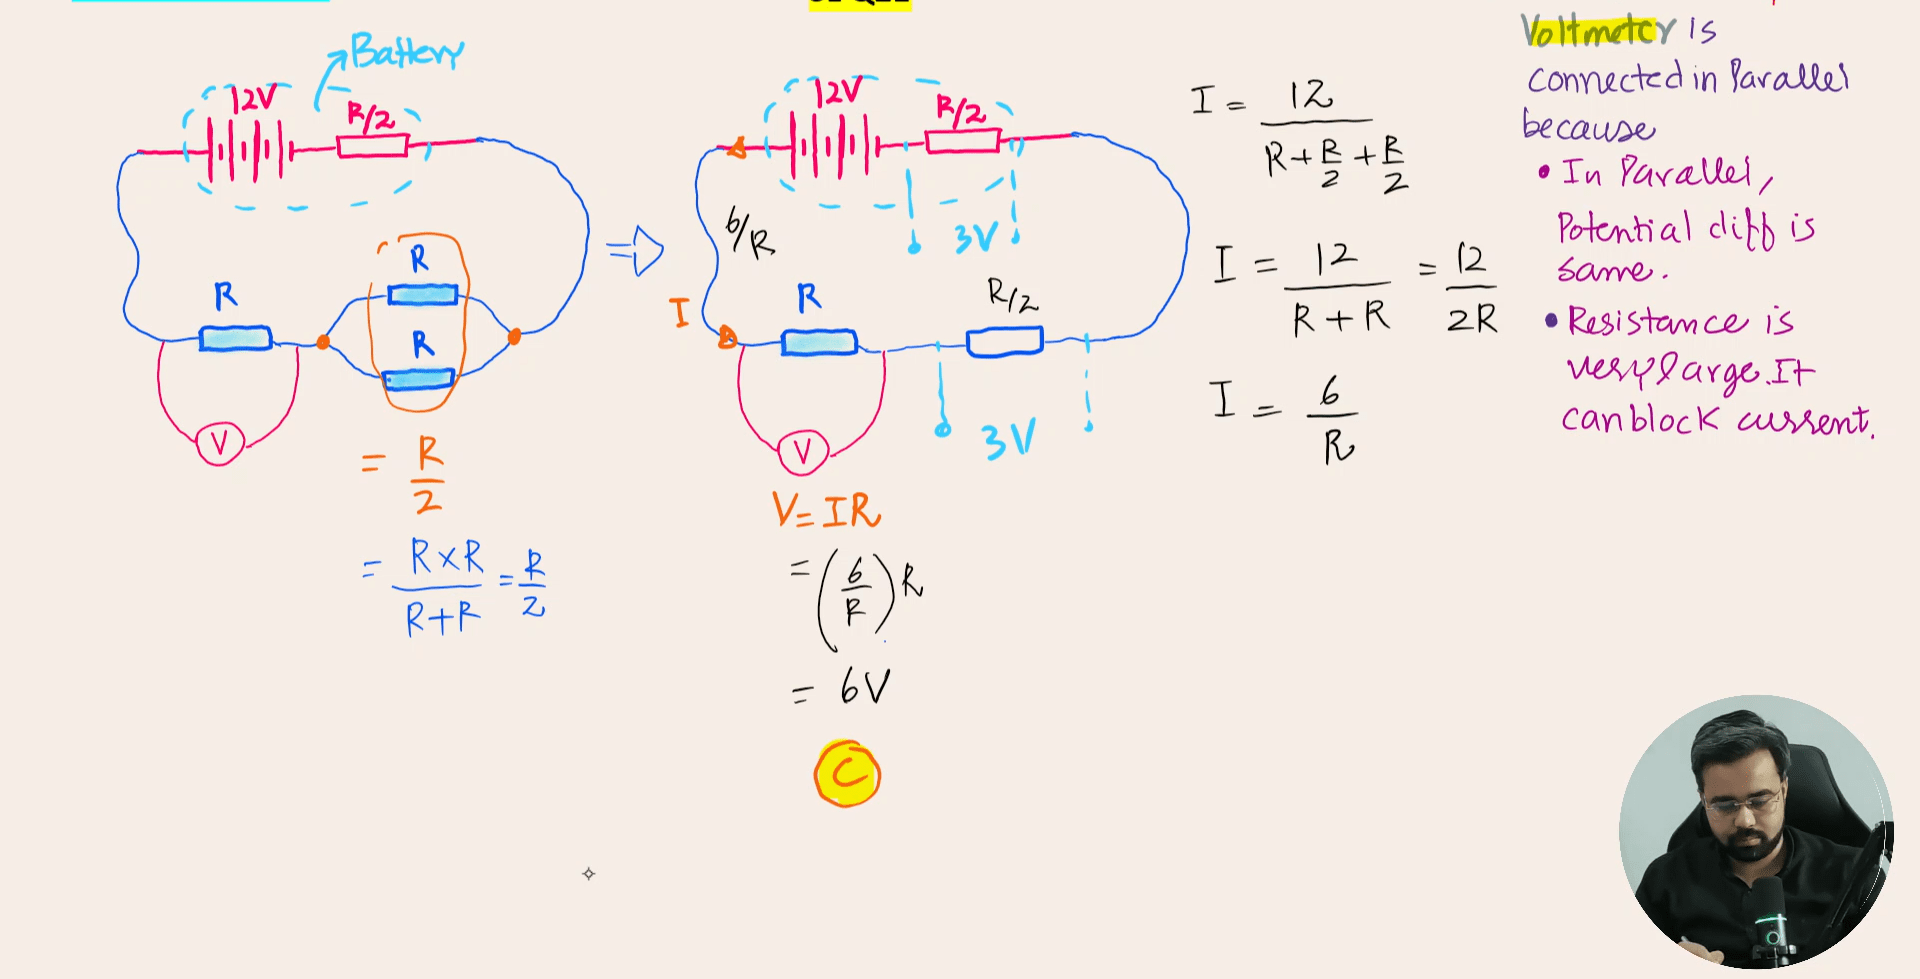 Battery
12V
R/2
R
R
R
V
= R/2
= R×R/R+R = R/2
12V
R/2
3V
6/R
I
R
R/2
V
3V
V = IR
= (6/R) R
= 6V
C
I = 12/R+R/2+R/2
I = 12/R+R = 12/2R
I = 6/R
Voltmeter is
connected in Parallel
because
• In Parallel,
Potential diff is
same.
• Resistance is
very large. It
can block current.